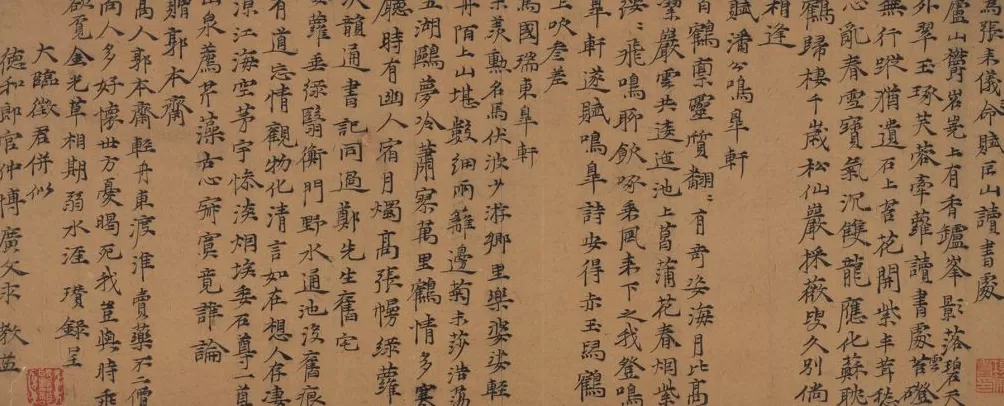 張來儀命賦匡山讀書處
廬山鬱岧嶤上有香鑪峯影落碧天
外翠玉琢芙蓉牽蘿讀書處雲磴
無行蹤猶遺石上苔花開紫半茸
心亂春雪寶氣沉雙龍應化蘇耽
鶴歸棲千歲松仙巖採薇叟久別倘
相逢
賦潘公鳴皐軒
鶴稟靈質翻:有奇姿海月比高
潔巖雲共逶迤池上菖蒲花春烟紫
:飛鳴聊飲啄乘風來下之我登鳴
皐軒遂賦鳴皐詩安得赤玉舄鶴
上吹參差
國瑞東皐軒
羨勲名馬伏波少游鄉里樂婆娑輕
舟陌上山堪數細雨籬邊菊未莎浩蕩
五湖鷗夢冷蕭寥萬里鶴情多寒
廳時有幽人宿月燭高張幔綠蘿
次韻通書記同過鄭先生舊宅
女蘿垂綠翳衡門野水通池沒舊痕
有道忘情觀物化清言如在想人存凄
涼江海空茅宇慘淡烟埃委石尊一首
山泉薦芹藻古心寂寞竟誰論
贈郭本齋
高人郭本齋輕舟東渡淮賣藥不二價
向人多好懷世方憂暍死我豈與時乖
欲覓金光草相期弱水涯 瓚錄呈
大臨徵君併似
德和郎官仲博廣文求教益